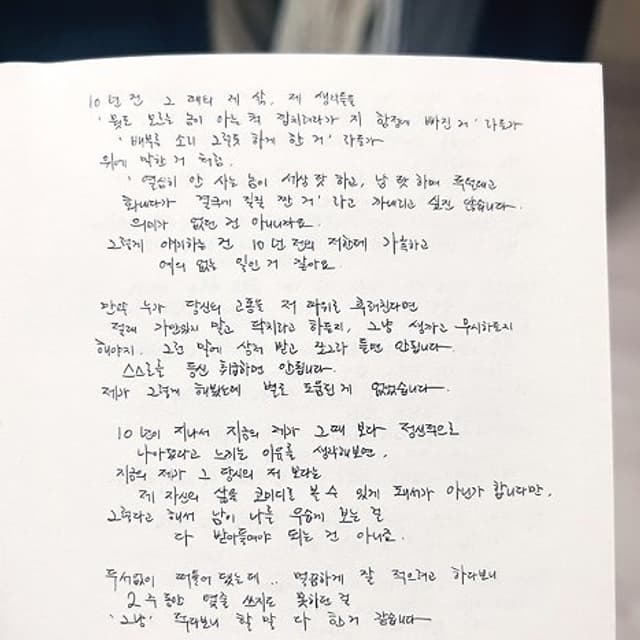 10년 전 그 때의 제 삶, 제 생각들을
'뭣도 모르는 놈이 아는 척 깝치려다가 지 함정에 빠진 거' 라든가
'배부른 소리 그럴듯하게 한 거' 라든가
위에 말한 거 처럼,
'열심히 안 사는 놈이 세상 탓 하고, 남 탓 하며
화내다가 결국에 질질 짠 거' 라고 까내리고 싶진 않습니다.
의미가 없던 건 아니니까요.
그렇게 얘기하는 건 10년 전의 저한테 가혹하고
예의 없는 일인 거 같아요.
만약 누가 당신의 고통을 저 따위로 후려친다면
절대 가만있지 말고 닥치라고 하든지, 그냥 생까고 무시하든지
해야지. 그런 말에 상처 받고 쪼그라 들면 안됩니다.
스스로를 등신 취급하면 안됩니다.
제가 그렇게 해봤는데 별로 도움된 게 없었습니다.
10년이 지나서 지금의 제가 그때 보다 정신적으로
나아졌다고 느끼는 이유를 생각해보면,
지금의 제가 그 당시의 저 보다는
제 자신의 삶을 코미디로 볼 수 있게 돼서가 아닌가 합니다만,
그렇다고 해서 남이 나를 우습게 보는 걸
다 받아들여야 되는 건 아니죠.
두서없이 떠들어 댔는데.. 멀끔하게 잘 적으려고 하다보니
2주 동안 몇줄 쓰지도 못하던 걸
'그냥' 적다보니 할 말 다 한거 같습니다